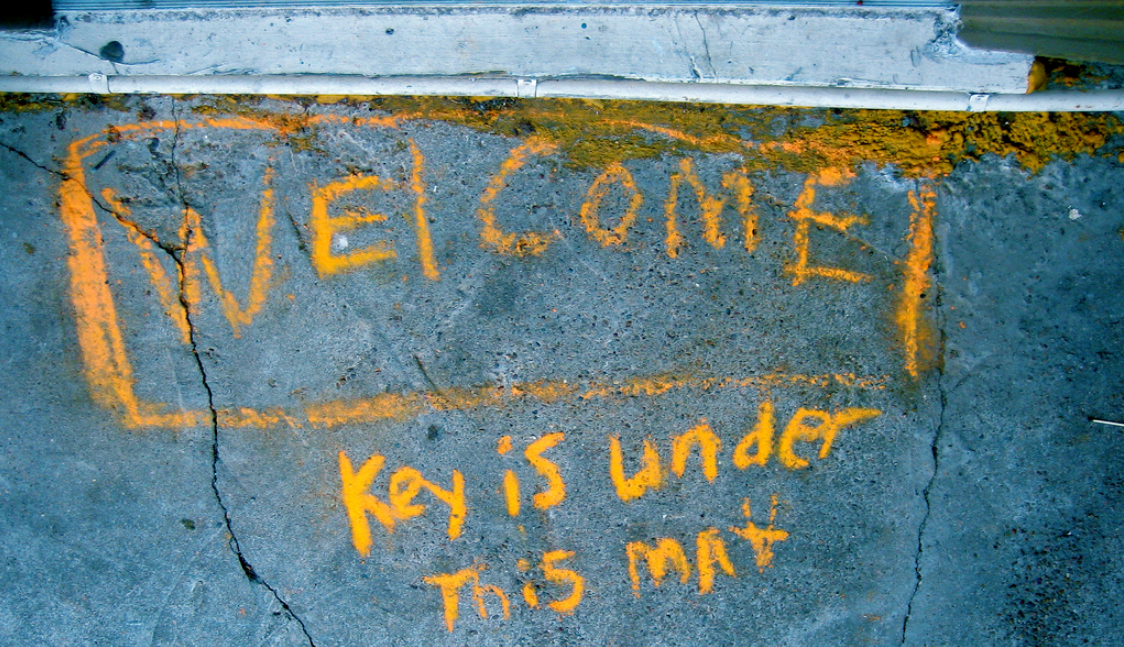 WElCOME
Key is under
This mAt